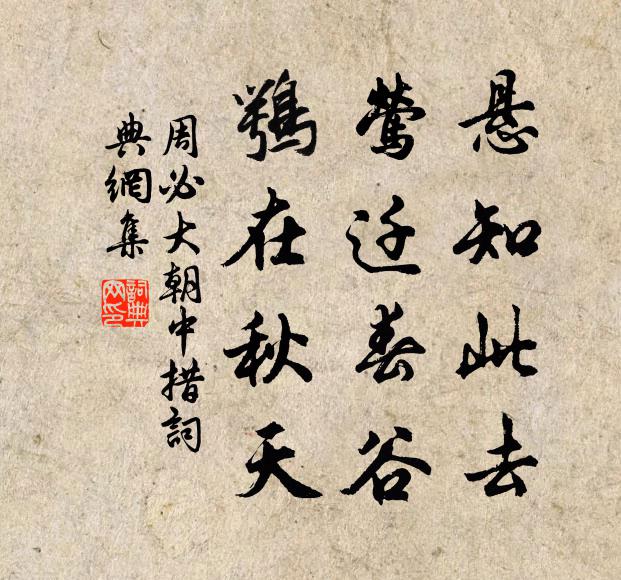 悬知此去
莺迁春谷
鹗在秋天
周必大朝中措詞
典網集
詞典网印